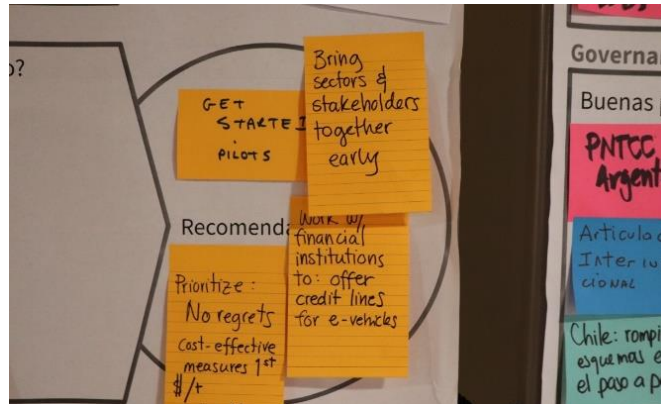 o?
GET
STARTE
PILOTS
Bring
sectors &
stakeholders
together
early
Recomenda
Work w/
financial
institutions
to: offer
credit lines
for e-vehicles
Prioritize:
No regrets
Cost-effective
measures 1st
$/t
Governa
Buenas
PNTCC
Argent
Articula
Inter
CIONAL
Chile: rompi
esquemas e
el paso a p